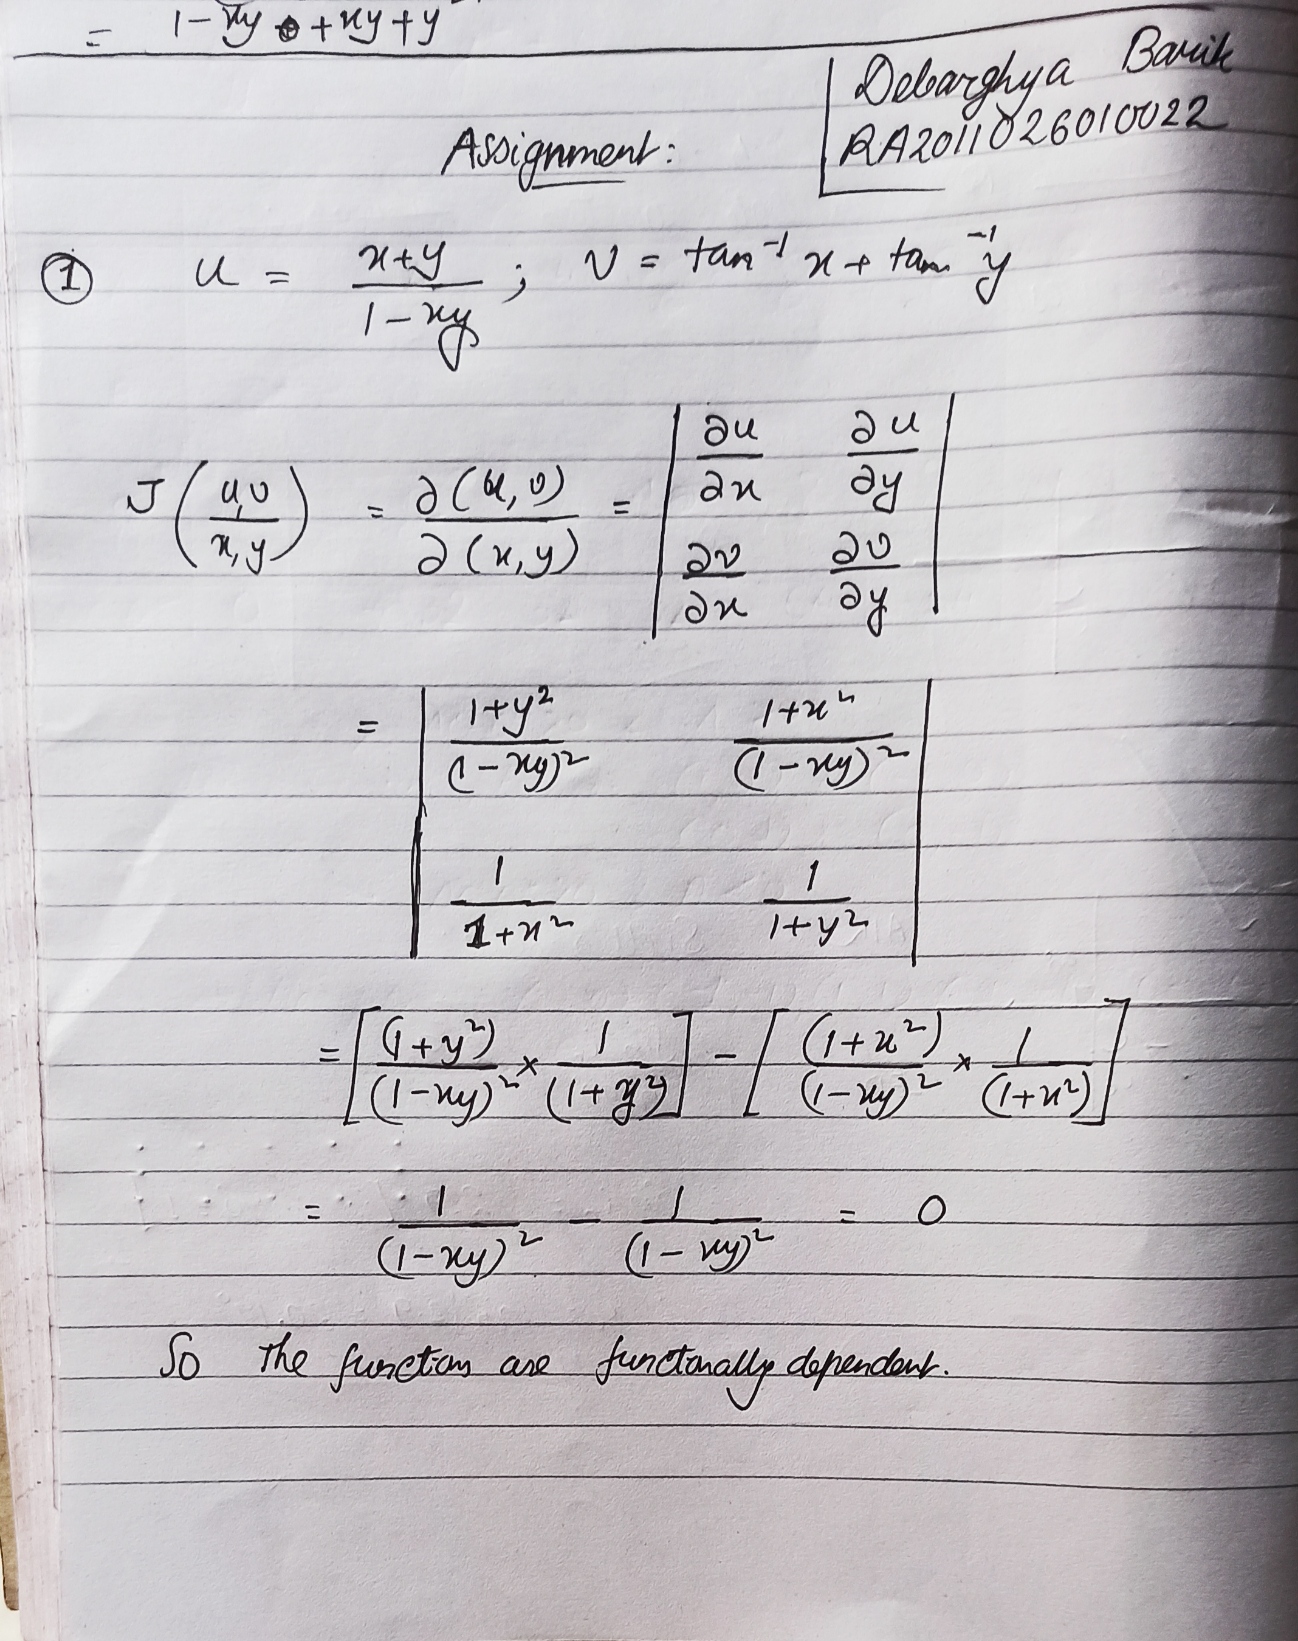 = 1-xy+xy+y
Debarghya Barik
RA2011026010022
Assignment:
① u = (x+y)/(1-xy) ; v = tan⁻¹ x + tan⁻¹ y
J(u,v/x,y) = ∂(u,v)/∂(x,y) = | ∂u/∂x ∂u/∂y |
| ∂v/∂x ∂v/∂y |
= | (1+y²)/(1-xy)² (1+x²)/(1-xy)² |
| 1/(1+x²) 1/(1+y²) |
= [(1+y²)/(1-xy)² × 1/(1+y²)] - [(1+x²)/(1-xy)² × 1/(1+x²)]
= 1/(1-xy)² - 1/(1-xy)² = 0
So the functions are functionally dependent.